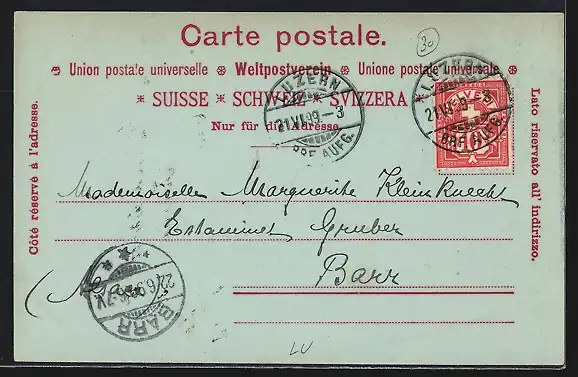 Carte postale.
30
Union postale universelle Weltpostverein Unione postale universale
* SUISSE * SCHWEIZ * SVIZZERA *
Nur für die Adresse.
Côté réservé à l'adresse.
Lato riservato all' indirizzo.
LUZERN
21.VI.99-3
BRF. AUFG.
LUZERN
21.VI.99-3
BRF. AUFG.
Mademoiselle Marguerite Kleinknecht
Estaminet Gruber
Barr
22/6.99
BARR